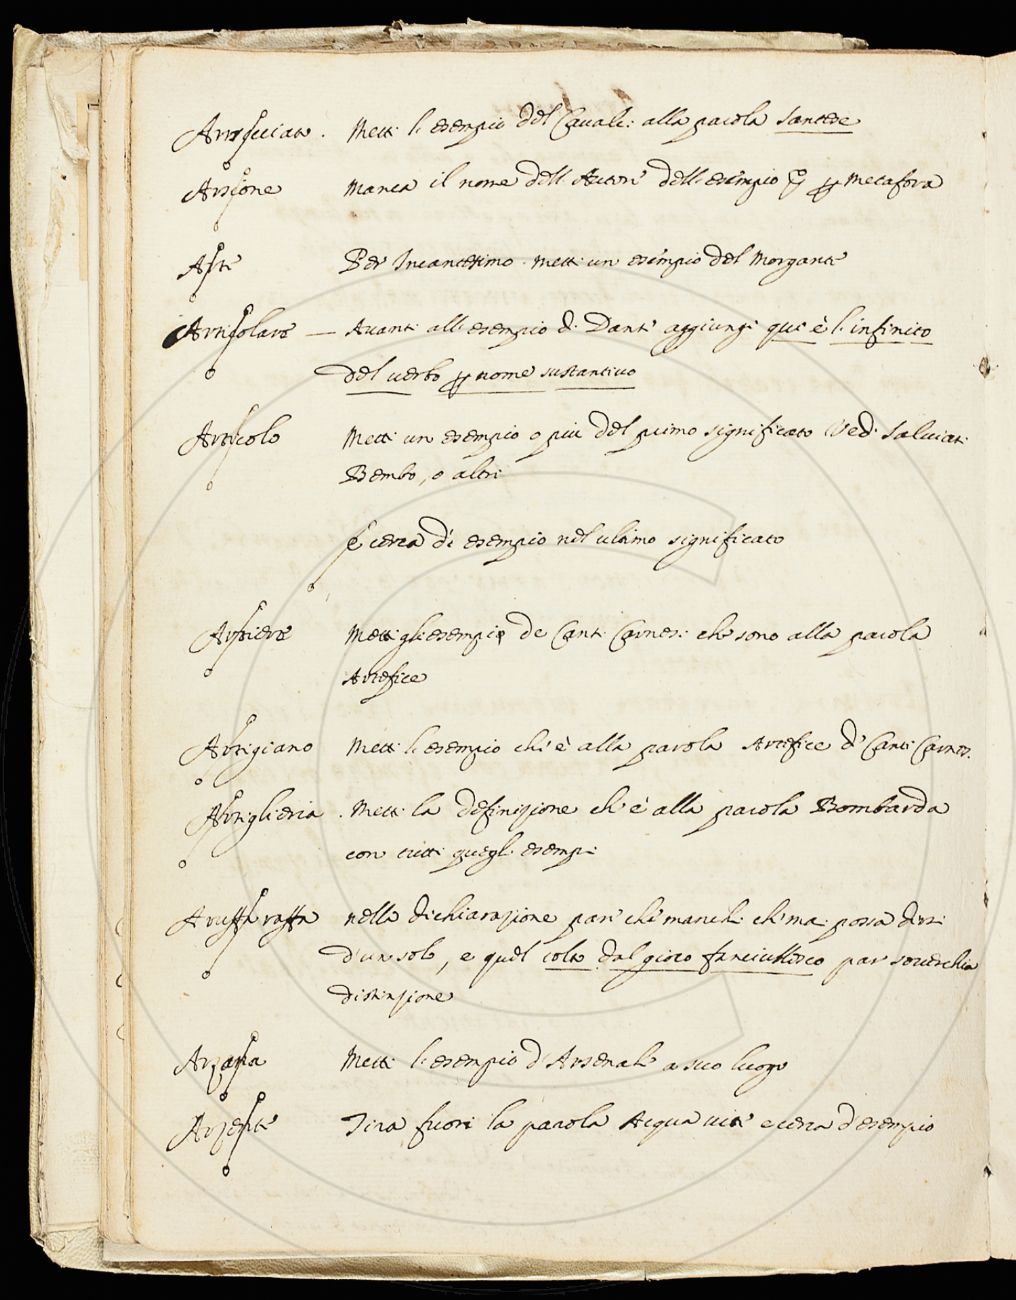 Mett. l'esempio del Caval: alla parola Santese
Arsione Manca il nome dell Autore dell esempio p metafora
Aste Per Incantesimo. Metti un esempio del Morgante
Avanti all esempio di Dante aggiungi qui è l'infinito
del verbo p nome sustantivo
Articolo Metti un esempio o più del primo significato Vedi Salviati
Bembo, o altri
e cerca di esempio nel ultimo significato
Artiere Metti gli esempi de Canti Carnes: che sono alla parola
Artefice
Artigiano Metti l'esempio ch'è alla parola Artefice d' Canti Carnes.
Artiglieria. Metti la definizione ch'è alla parola Bombarda
con tutti quegli esempi
Aruffa raffa nella dichiarazione par che manchi che mai possa dirsi
d'un solo, e quel colto dal gioco fanciullesco par soverchia
distinzione
Arzanà Metti l'esempio d'Arsenale a suo luogo
Arzente Tira fuori la parola Acqua vite e cerca d'esempio